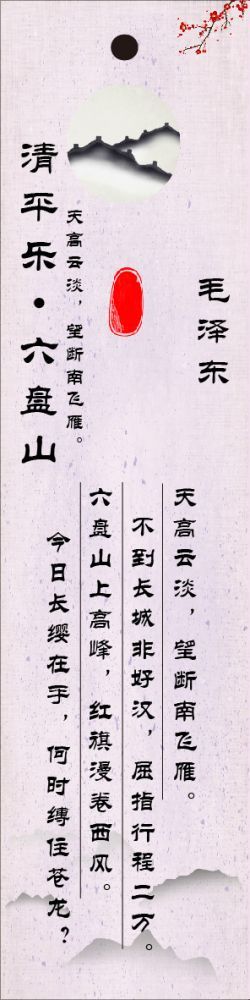 清平乐·六盘山
天高云淡，望断南飞雁。
毛泽东
天高云淡，望断南飞雁。
不到长城非好汉，屈指行程二万。
六盘山上高峰，红旗漫卷西风。
今日长缨在手，何时缚住苍龙？